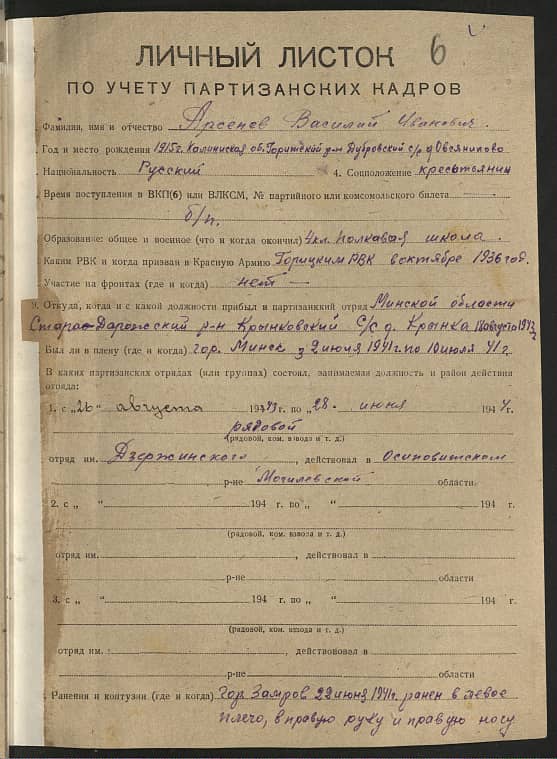 6
ЛИЧНЫЙ ЛИСТОК
ПО УЧЕТУ ПАРТИЗАНСКИХ КАДРОВ
Фамилия, имя и отчество Арсенов Василий Иванович.
Год и место рождения 1915 г. Калининская об. Горитский р-н Дубровский с/с д Овсянниково
Национальность Русский 4. Соцположение крестьянин
Время поступления в ВКП(б) или ВЛКСМ, № партийного или комсомольского билета
б/п.
Образование: общее и военное (что и когда окончил) 4 кл. полкавая школа.
Каким РВК и когда призван в Красную Армию Горицким РВК в октябре 1936 год.
Участие на фронтах (где и когда) нет —
9. Откуда, когда и с какой должности прибыл в партизанкий отряд Минской области
Старо-Дарожсский р-н Крынковский С/с д. Крынка 18 августа 1943 г
Был ли в плену (где и когда) гор. Минск з 2 июня 1941 г. по 10 июля 41 г.
В каких партизанских отрядах (или группах) состоял, занимаемая должность и район действия
отряда:
1. с „26" августа 1943 г. по „28. июня 194 4 г.
рядовой
(рядовой, ком. взвода и т. д.)
отряд им. Дзержинского, действовал в Осиповитском
р-не Могилевской области
2. с „ " 194 г. по „ " 194 г.
(рядовой, ком. взвоза и т. д.)
отряд им. , действовал в
р-не области
3. с „ " 194 г. по „ " 194 г.
(рядовой, ком. взвода и т. д.)
отряд им. , действовал в
р-не области
Ранения и контузии (где и когда) Гор. Замров 22 июня 1941 г. ранен в левое
плечо, в правую руку и правую ногу